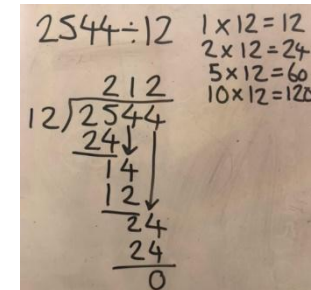 2544÷12
1×12=12
2×12=24
5×12=60
10×12=120
212
12)2544
24
14
12
24
24
0